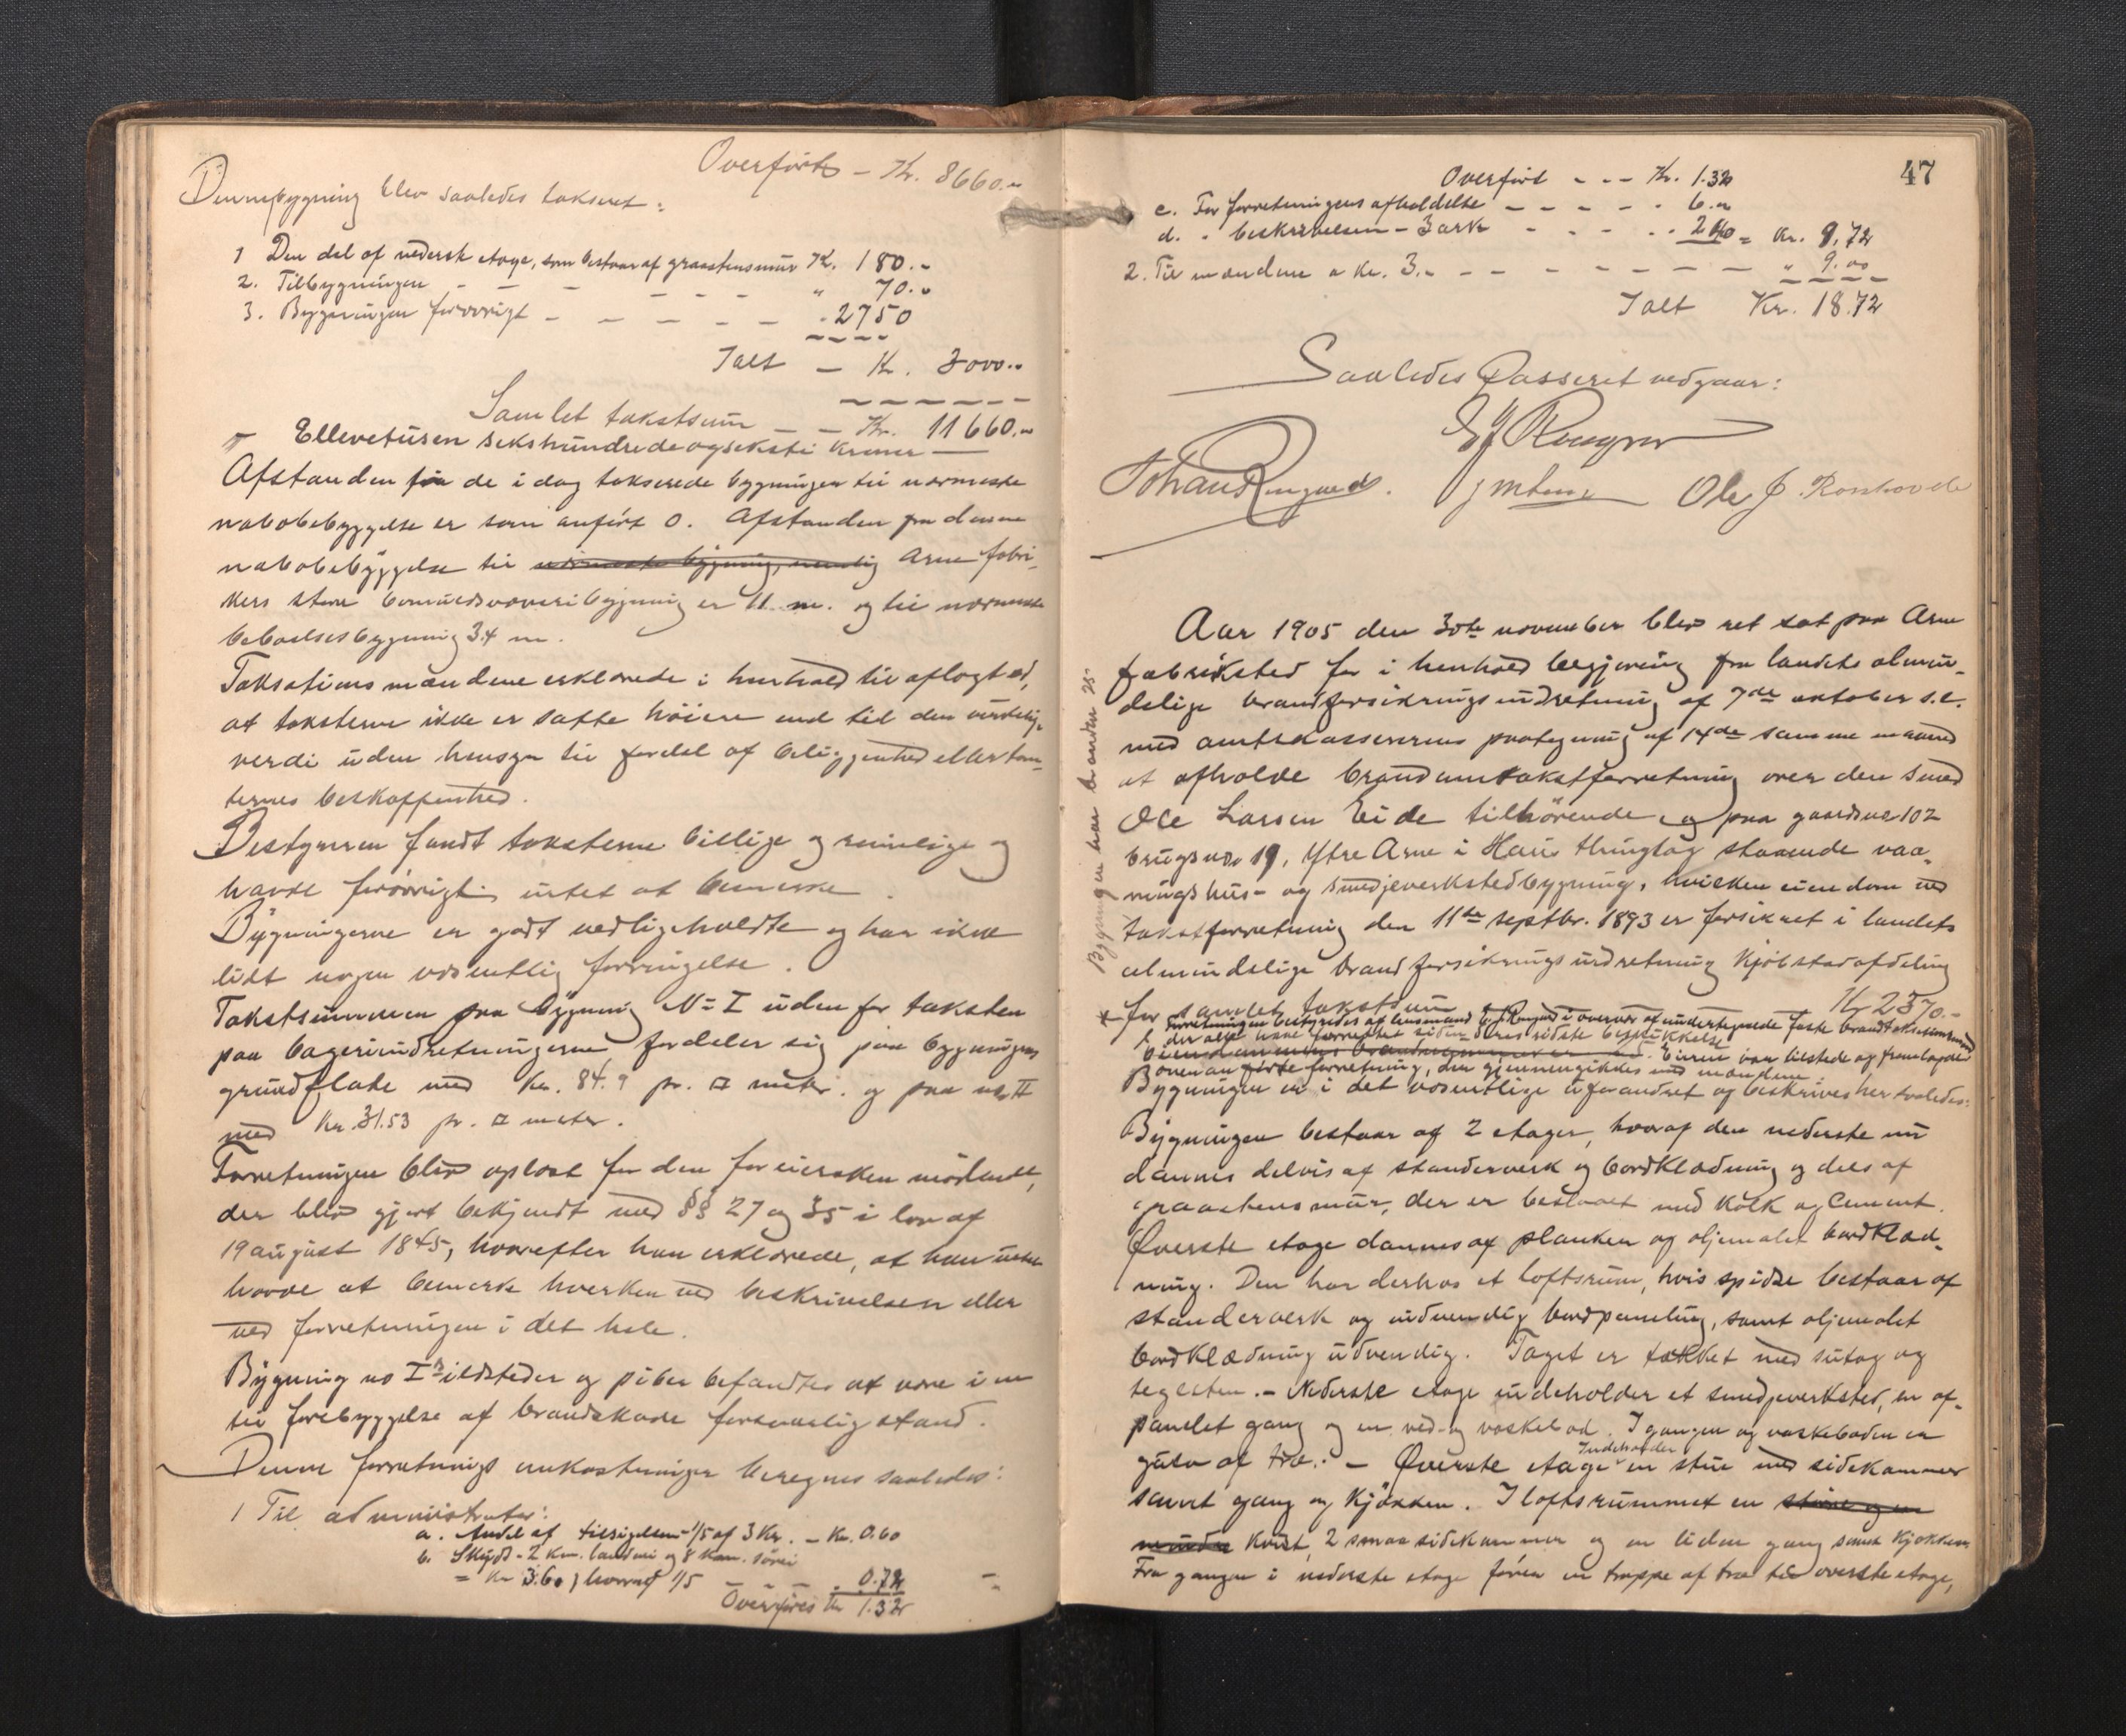 Overført – Kr. 8660.-
Denne bygning blev saaledes takseret:
1 Den del af nederste etage, som bestaar af graastensmur Kr. 180.-
2. Tilbygningen – – – – – – " 70.-
3. Bygningen forøvrigt – – – – – - 2750
Ialt – Kr. 3000..
Samlet takstsum – – Kr. 11660.-
Ellevetusen sekshundredeogseksti kroner —
Afstanden fra de i dag takserede bygninger til nærmeste
nabobebyggelse er som anført 0. Afstanden fra denne
nabobebyggelse til nærmeste bygning, nemlig Arne fabri-
kers store bomuldsvæveribygning er 11 m. og til nærmeste
beboelsesbygning 34 m.
Taksationsmændene erklærede i henhold til aflagt ed,
at taksterne ikke er satte høiere end til den virkelige
verdi uden hensyn til fordel af beliggenhed eller tom-
ternes beskaffenhed.
Bestyreren fandt taksterne billige og rimelige og
havde forøvrigt intet at bemerke.
Bygningerne er godt vedligeholdte og har ikke
lidt nogen væsentlig forringelse.
Takstsummen paa bygning No I uden for taksten
paa bageriindretningerne fordeler sig paa bygningens
grundflate med Kr. 84.9 pr. □ meter. og paa no II
med Kr. 31.53 pr. □ meter.
Forretningen blev oplæst for den for eiersken mødende,
der blev gjort bekjendt med §§ 27 og 35 i lov af
19 august 1845, hvorefter han erklærede, at han intet
havde at bemerke hverken ved beskrivelsen eller
ved forretningen i det hele.
Bygning no I's ildsteder og piber befandtes at være i en
til forebyggelse af brandskade forsvarlig stand.
Denne forretnings omkostninger beregnes saaledes:
1 Til administrator:
a. Andel af tilsigelsen 1/5 af 3 Kr. – Kr. 0.60
b. Skyds - 2 km. landvei og 8 km. sjøvei
= Kr 3.60, hvoraf 1/5 – – – 0.72
Overføres Kr 1.32
47
Overført - - - Kr. 1.32
c. For forretningens afholdelse – – – – - 6.-
d. " beskrivelsen - 3 ark - - - - - 2.40 = Kr. 9.72
2. Til mændene a Kr. 3.- – – – – – – – " 9.00
Ialt Kr. 18.72
Saaledes Passeret vedgaar:
Ole J.
Aar 1905 den 30te november blev ret sat paa Arne
fabriksted for i henhold begjæring fra landets almin-
delige brandforsikringsindretning af 7de oktober s.l.
med amtskassererens paategning af 14de samme maaned
at afholde brandomtakstforretning over den smed
Ole Larsen Eide tilhørende og paa gaardsno 102
brugsno. 19, Ytre Arne i Haus thinglag staaende vaa-
ningshus- og smedjeverkstedbygning, hvilken eiendom ved
takstforretning den 11te septbr. 1893 er forsikret i landets
almindelige brandforsikringsindretning Kjøbstadafdeling
for samlet takstsum – – – Kr 2570.-
Forretningen bestyredes af lensmand i overvær af undertegnede faste brandtakstmænd
der alle siden deres sidste beskikkelse
. Eieren var tilstede og fremlagde
ovenanførte forretning, der gjennemgikkes med mændene.
Bygningen er i det væsentlige uforandret og beskrives her saaledes:
Bygningen bestaar af 2 etager, hvoraf den nederste nu
dannes delvis af standerverk og bordklædning og dels af
graastensmur, der er beslaaet med kalk og cement.
Øverste etage dannes af planker og oljemalet bordklæd-
ning. Den har derhos et loftsrum, hvis spidse bestaar af
standerverk og indvendig bordpaneling, samt oljemalet
bordklædning udvendig. Taget er tækket med sutag og
teglsten. - Nederste etage indeholder et smedjeverksted, en af-
panelet gang og en ved- og vaskebod. I gangen og vaskeboden er
gulv af træ. – Øverste etage Indeholder en stue med sidekammer
samt gang og kjøkken. I loftsrummet en stue og en
mindre kvist, 2 smaa sidekammer og en liden gang samt kjøkken.
Fra gangen i nederste etage fører en trappe af træ til øverste etage,
Bygningen har branden 25-